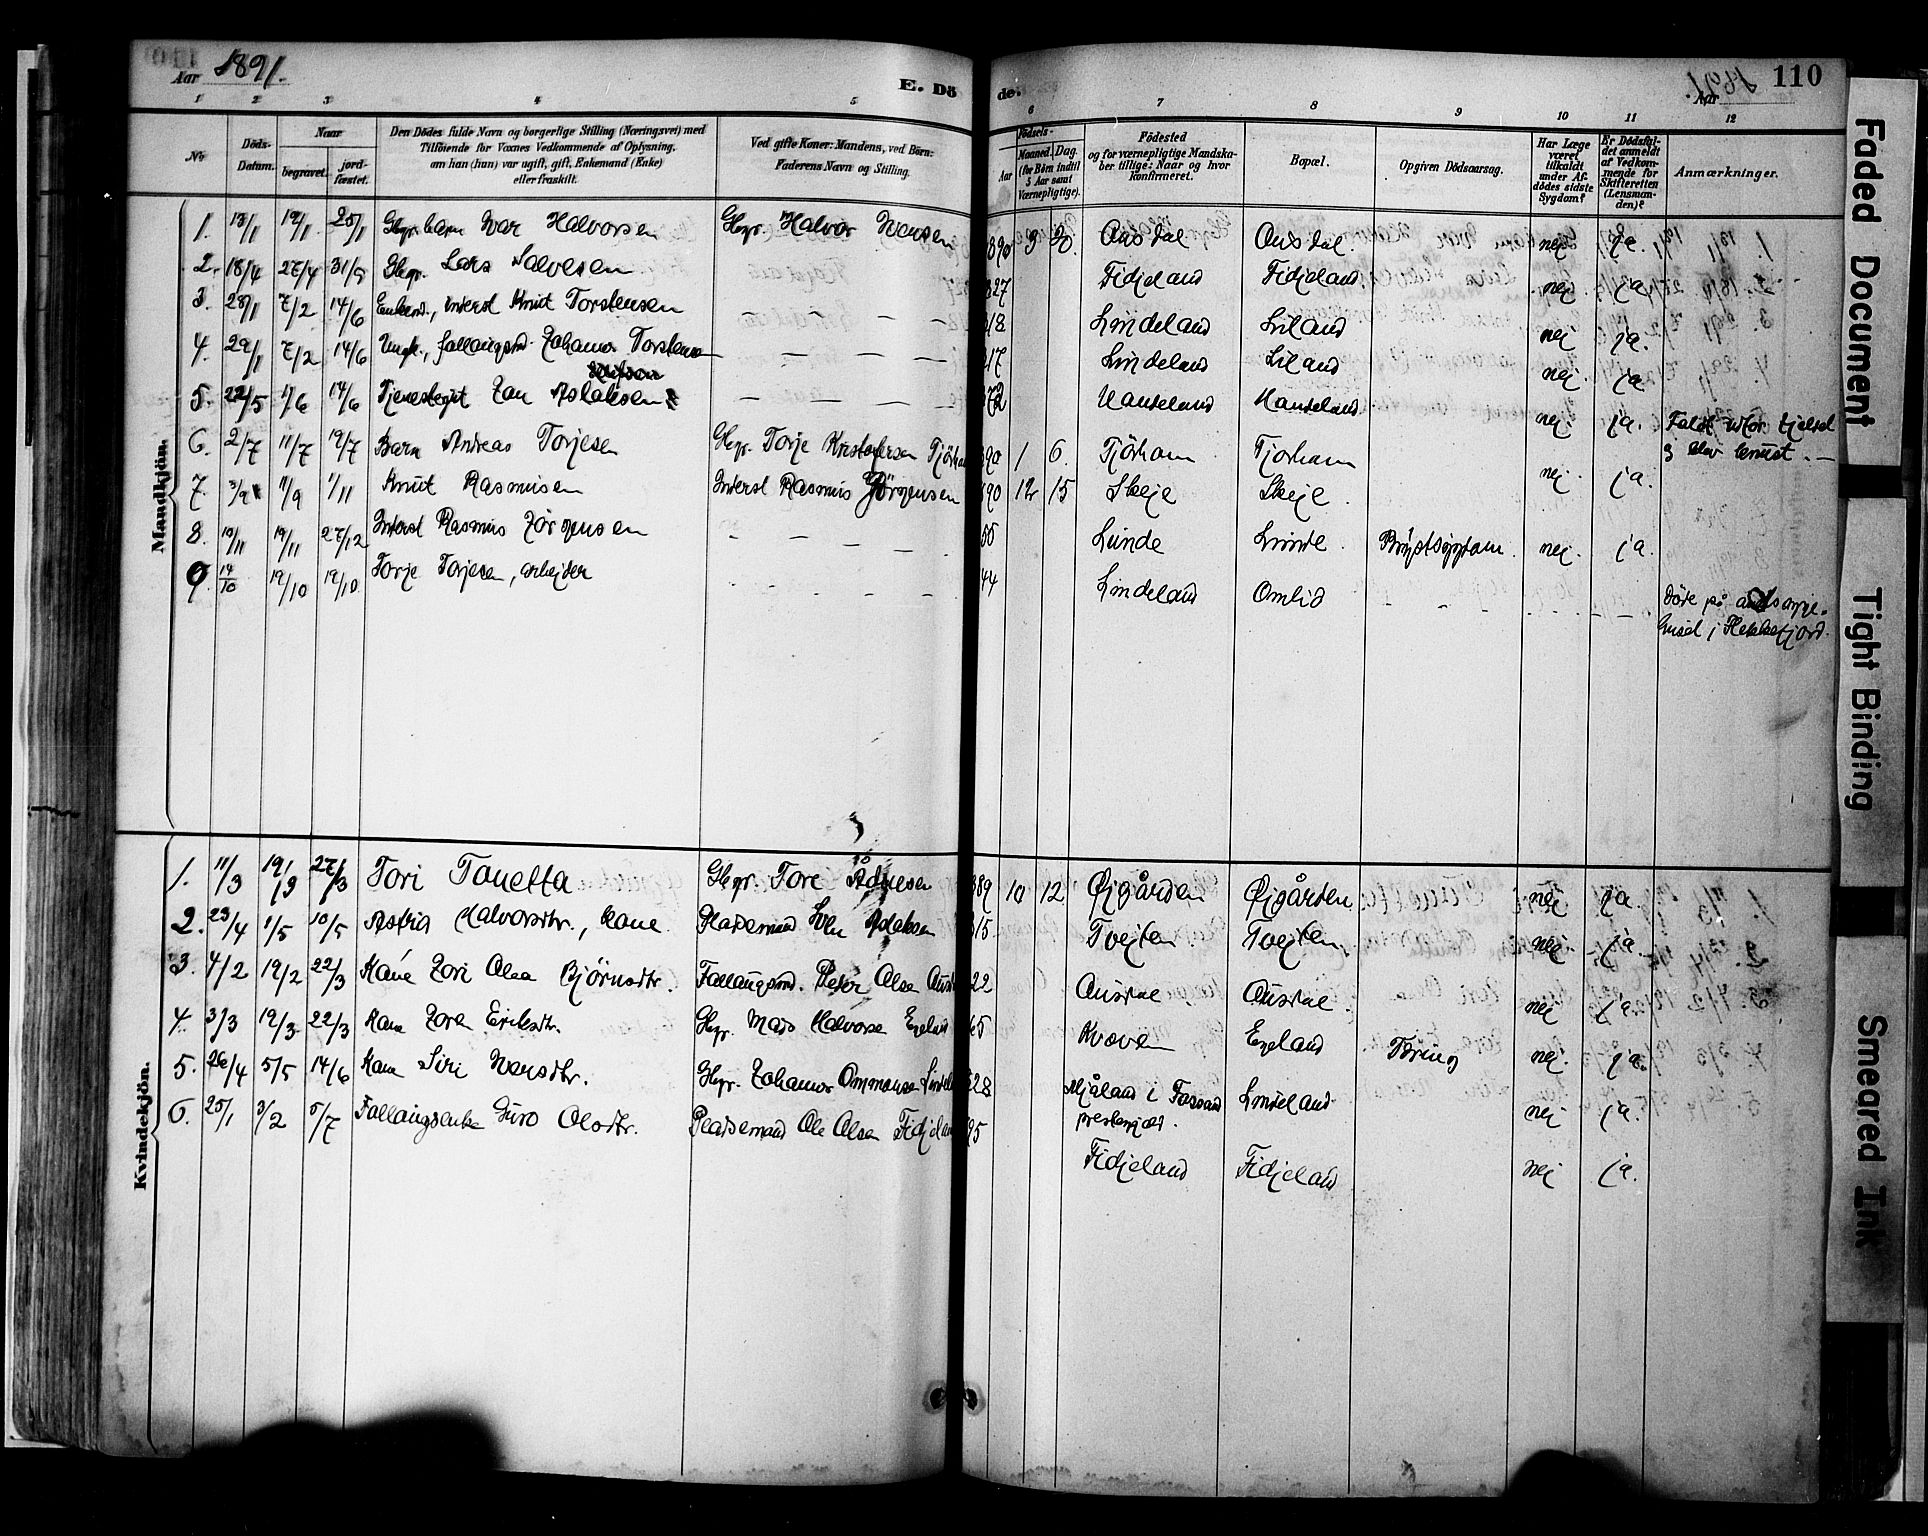 Aar 1891.
E. Dö
de.
Aar 1891.
110
1 2 3 4 5 6 7 8 9 10 11 12
No
Döds-Datum.
Naar
begravet.
jord-fæstet.
Den Dödes fulde Navn og borgerlige Stilling (Næringsvei) med
Tilföiende for Voxnes Vedkommende af Oplysning,
om han (hun) var ugift, gift, Enkemand (Enke)
eller fraskilt.
Ved gifte Koner: Mandens, ved Börn:
Faderens Navn og Stilling.
Födsels-
Aar
Maaned. Dag.
(for Börn indtil
5 Aar samt
Værnepligtige).
Födested
og for værnepligtige Mandska-
ber tillige: Naar og hvor
konfirmeret.
Bopæl.
Opgiven Dödsaarsag.
Har Læge
været
tilkaldt
under Af-
dödes sidste
Sygdom?
Er Dödsfal-
det anmeldt
af Vedkom-
mende for
Skifteretten
(Lensman-
den)?
Anmærkninger.
Mandkjön.
1. 13/1 19/1 25/1 Gbgr. barn Ivar Halvorsen Gbgr. Halvor Iversen 890 3 20. Ousdal Ousdal. nej ja.
2. 18/4 27/4 31/5 Gbgr. Lars Salvesen 827 Fidjeland Fidjeland nej. ja
3. 28/1 7/2 14/6 Enkem., inderst Knut Torstensen — — — 818 Lindeland Liland nej ja.
4. 29/1 7/2 14/6 Ungk., fallaugsmd. Johannes Torstensen — — — 817 Lindeland Liland nej. ja
5. 22/5 1/6 14/6 Tjenestegut Jan Aslaksen — — — — 872 Hauseland Hauseland nej. ja. Faldt utfor fjeldet
6. 2/7 11/7 19/7 Barn Andreas Torjesen Gbgr. Torje Kristofersen Tjörhom 890 1 6. Tjörhom Tjorhom nej. ja. & blev knust. —
7. 3/9 11/9 1/11 Knut Rasmusen Inderst Rasmus Jörgensen 890 12 15 Skeje Skeje.
8. 10/11 19/11 27/12 Inderst Rasmus Jörgensen — — — — 55 Lunde Lunde. Brystsygdom. nej. ja.
9. 14/10 19/10 19/10 Torje Torjesen, arbejder — — — — 44 Lindeland Omlid — — — — — — Döde på
i Flekkefjord.
Kvindekjön.
1. 11/3 19/3 27/3 Tori Tonetta Gbgr. Tore Ådnesen 889 10 12 Øjgården Øjgården nej ja.
2. 23/4 1/5 10/5 Astrid Halvorsdtr., kone Pladsemand Sven Aslaksen 815. Tvejten Tvejten nej. ja
3. 4/2 19/2 22/3 Kone Jori Olsa Björnsdtr. Fallaugsmd. Peder Olsen Ousd 22 Ousdal Ousdal. nej ja.
4. 3/3 19/3 22/3 Kone Joren Eriksdtr. Gbgr. Mads Halvorsen Egeland 65 Kvæven Egeland Tæring nej. ja.
5. 26/4 5/5 14/6 Kone Siri Iversdtr. Gbgr. Johannes Ommunsen Lindeland 828 Mjåland i Fossand Lindeland. nej ja.
prestegjæl.
6. 25/1 3/2 5/7 Fallaugsenke Guro Olsdtr. Pladsemand Ole Olsen Fidjeland 95 Fidjeland Fidjeland nej ja.
Faded Document
Tight Binding
Smeared Ink